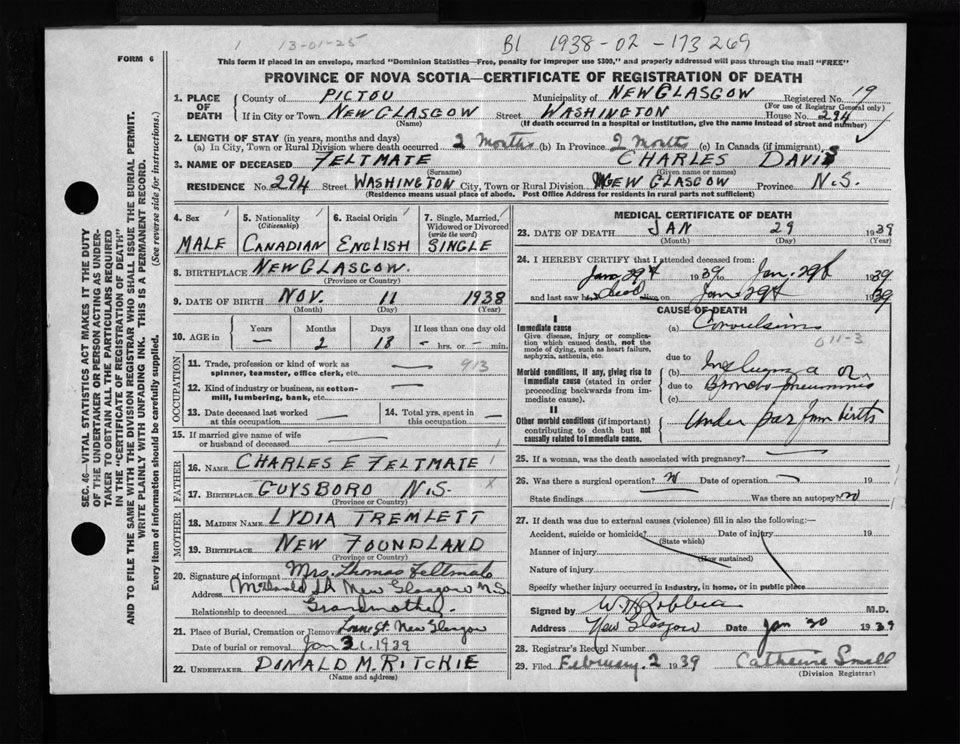 1 13-01-25 B1 1938-02-173269
FORM 6
This form if placed in an envelope, marked "Dominion Statistics—Free, penalty for improper use $300," and properly addressed will pass through the mail "FREE"
PROVINCE OF NOVA SCOTIA—CERTIFICATE OF REGISTRATION OF DEATH
1. PLACE OF DEATH County of PICTOU Municipality of NEW GLASGOW Registered No. 19
(For use of Registrar General only)
If in City or Town NEW GLASGOW Street WASHINGTON House No. 294
(Name) (If death occurred in a hospital or institution, give the name instead of street and number)
2. LENGTH OF STAY (in years, months and days)
(a) In City, Town or Rural Division where death occurred 2 Months (b) In Province 2 Months (c) In Canada (if immigrant)
3. NAME OF DECEASED FELTMATE CHARLES DAVIS
(Surname) (Given name or names)
RESIDENCE No. 294 Street WASHINGTON City, Town or Rural Division NEW GLASGOW Province N.S.
(Residence means usual place of abode. Post Office Address for residents in rural parts not sufficient)
SEC. 46—VITAL STATISTICS ACT MAKES IT THE DUTY
OF THE UNDERTAKER OR PERSON ACTING AS UNDER-
TAKER TO OBTAIN ALL THE PARTICULARS REQUIRED
IN THE "CERTIFICATE OF REGISTRATION OF DEATH"
AND TO FILE THE SAME WITH THE DIVISION REGISTRAR WHO SHALL ISSUE THE BURIAL PERMIT.
WRITE PLAINLY WITH UNFADING INK. THIS IS A PERMANENT RECORD.
Every item of information should be carefully supplied. (See reverse side for instructions.)
4. Sex MALE
5. Nationality (Citizenship) CANADIAN
6. Racial Origin ENGLISH
7. Single, Married, Widowed or Divorced (write the word) SINGLE
8. BIRTHPLACE NEW GLASGOW.
(Province or Country)
9. DATE OF BIRTH NOV. 11 1938
(Month) (Day) (Year)
10. AGE in Years — Months 2 Days 18 If less than one day old - hrs. or - min.
OCCUPATION
11. Trade, profession or kind of work as spinner, teamster, office clerk, etc. — 913
12. Kind of industry or business, as cotton-mill, lumbering, bank, etc. —
13. Date deceased last worked at this occupation —
14. Total yrs. spent in this occupation —
15. If married give name of wife or husband of deceased —
FATHER
16. NAME CHARLES E FELTMATE
17. BIRTHPLACE GUYSBORO N.S.
(Province or Country)
MOTHER
18. MAIDEN NAME LYDIA TREMLETT
19. BIRTHPLACE NEW FOUNDLAND
(Province or Country)
20. Signature of informant Mrs. Thomas Feltmate
Address New Glasgow N.S.
Relationship to deceased Grandmother.
21. Place of Burial, Cremation or Removal New Glasgow
Date of burial or removal Jan 31 1939
22. UNDERTAKER DONALD M. RITCHIE
(Name and address)
MEDICAL CERTIFICATE OF DEATH
23. DATE OF DEATH JAN 29 1939
(Month) (Day) (Year)
24. I HEREBY CERTIFY that I attended deceased from:
Jan. 29th 1939 to Jan. 29th 1939
and last saw h dead alive on Jan. 29th 1939
CAUSE OF DEATH
I
Immediate cause
Give disease, injury or complication which caused death, not the mode of dying, such as heart failure, asphyxia, asthenia, etc.
(a) Convulsions
011-3
due to
Morbid conditions, if any, giving rise to immediate cause (stated in order proceeding backwards from immediate cause).
(b) Influenza or
due to Broncho Pneumonia
(c)
II
Other morbid conditions (if important) contributing to death but not causally related to immediate cause.
Under par from birth
25. If a woman, was the death associated with pregnancy? —
26. Was there a surgical operation? no Date of operation — 19
State findings — Was there an autopsy? no
27. If death was due to external causes (violence) fill in also the following:—
Accident, suicide or homicide? Date of injury 19
(State which)
Manner of injury
(How sustained)
Nature of injury
Specify whether injury occurred in industry, in home, or in public place
Signed by M.D.
Address New Glasgow Date Jan 30 1939
28. Registrar's Record Number
29. Filed February. 2 1939 Catherine Small
(Division Registrar)